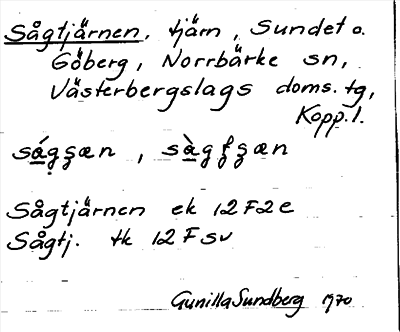 Sågtjärnen, tjärn, Sundet o.
Göberg, Norrbärke sn,
Västerbergslags doms. tg,
Kopp. l.
Sågtjärnen ek 12F2e
Sågtj. tk 12F SV
Gunilla Sundberg 1970